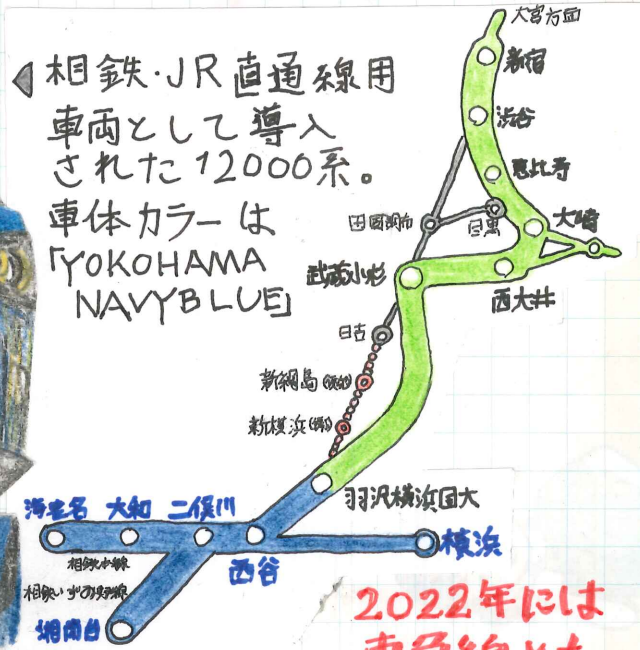 大宮方面
相鉄・JR直通線用
車両として導入
された12000系。
車体カラーは
「YOKOHAMA
NAVYBLUE」
新宿
渋谷
恵比寿
田園調布
目黒
大崎
武蔵小杉
西大井
日吉
新綱島(仮称)
新横浜(仮称)
羽沢横浜国大
海老名
大和
二俣川
西谷
横浜
相鉄本線
相鉄いずみ野線
湘南台
2022年には